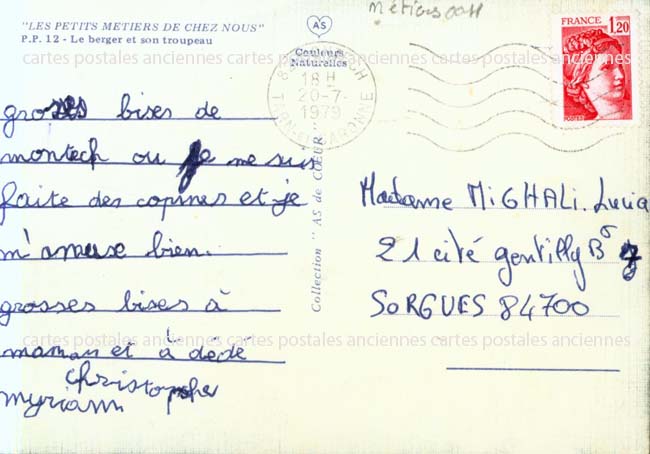 "LES PETITS METIERS DE CHEZ NOUS"
P.P. 12 - Le berger et son troupeau
AS
Couleurs
Naturelles
Métiers
FRANCE
1,20
POSTES
82 MONTECH
18 H
20-7-
1979
TARN-ET-GARONNE
cartes postales anciennes cartes postales anciennes cartes postales anciennes
grosses bises de
montech ou je me suis
faite des copines et je
m'amuse bien.
grosses bises à
maman et à dede
christopher
myriam
Collection "AS de CŒUR"
Madame MiGHALi. Lucia
21 cité gentilly B
SORGUES 84700
cartes postales anciennes cartes postales anciennes cartes postales anciennes